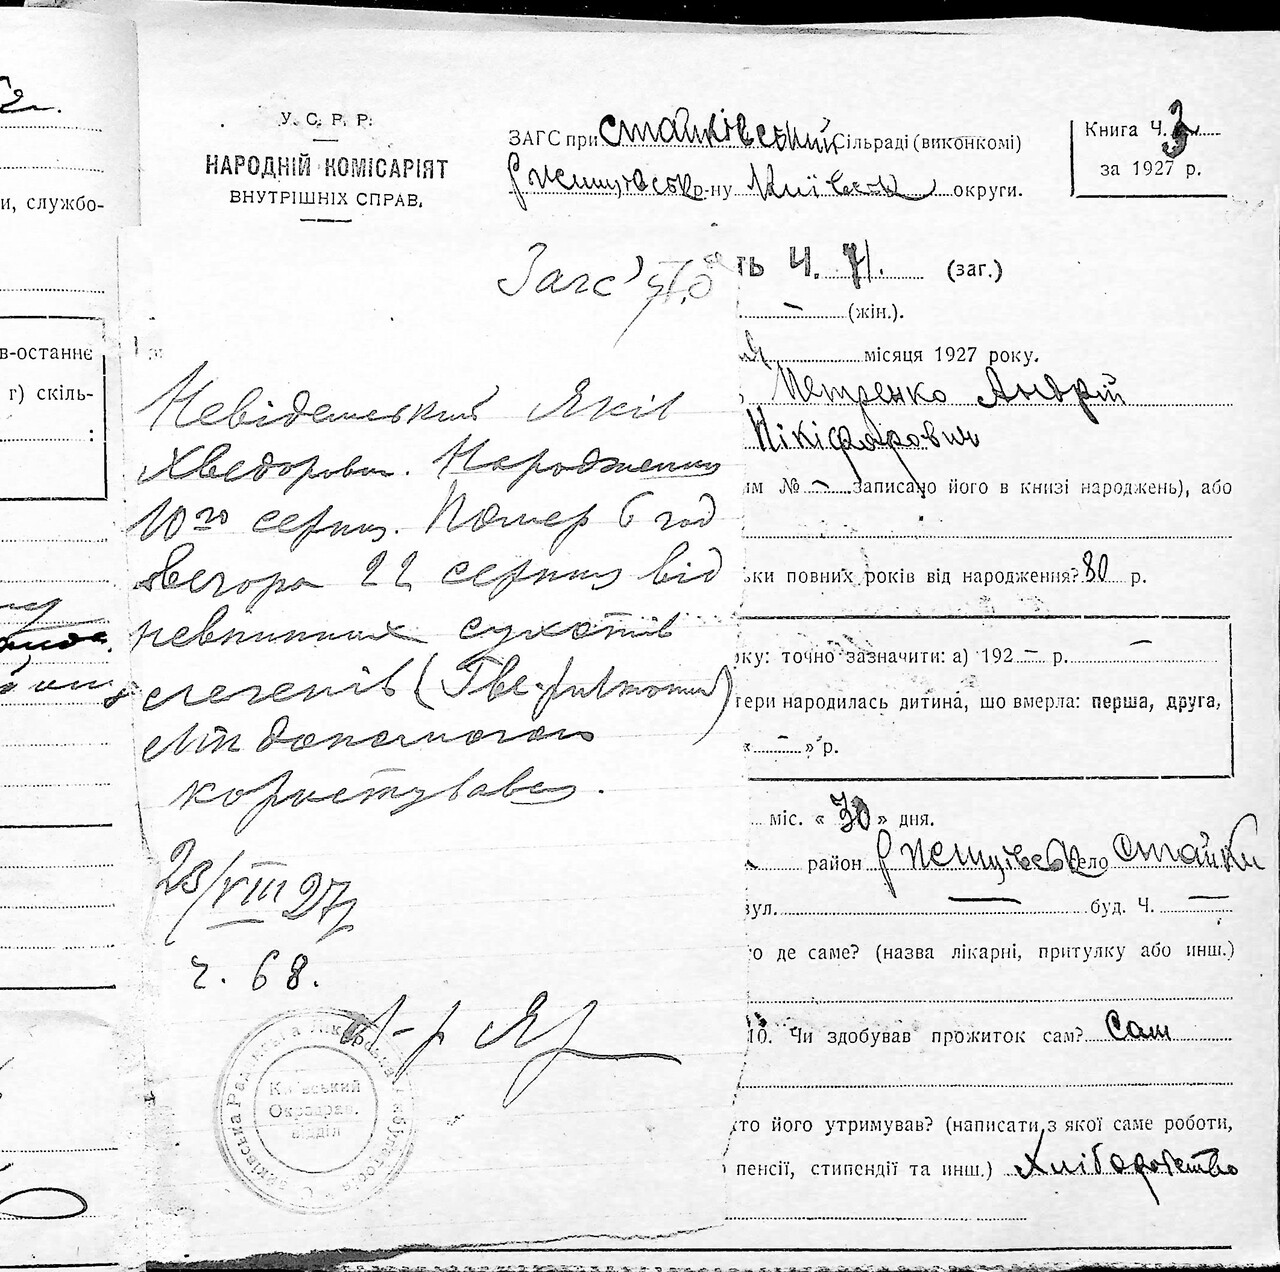 и, службо-
в-останнє
г) скіль-
:
У. С. Р. Р.
НАРОДНІЙ КОМІСАРІЯТ
ВНУТРІШНІХ СПРАВ.
ЗАГС при Стайківський Сільраді (виконкомі)
Ржищівськ р-ну Київськ округи.
Книга Ч. 3
за 1927 р.
Загс'у
Невідемський Яків
Хведорович. Народження
10го серпня. Помер 6 год
вечора 22 серпня від
невпинних сухотів
легенів (
допомогою
користувався.
23/VIII 27
ч. 68.
Київський
Окрздрав.
відділ
ть Ч. 71. (заг.)
– (жін.).
місяця 1927 року.
Петренко Андрій
Нікіфарович
им № – записано його в книзі народжень), або
ьки повних років від народження? 80 р.
оку: точно зазначити: а) 192 – р. –
тери народилась дитина, що вмерла: перша, друга,
« – » р.
міс. « 30 » дня.
район Ржищівськ село Стайки
вул. — буд. Ч. —
о де саме? (назва лікарні, притулку або инш.)
10. Чи здобував прожиток сам? Сам
хто його утримував? (написати з якої саме роботи,
пенсії, стипендії та инш.) Хліборобство